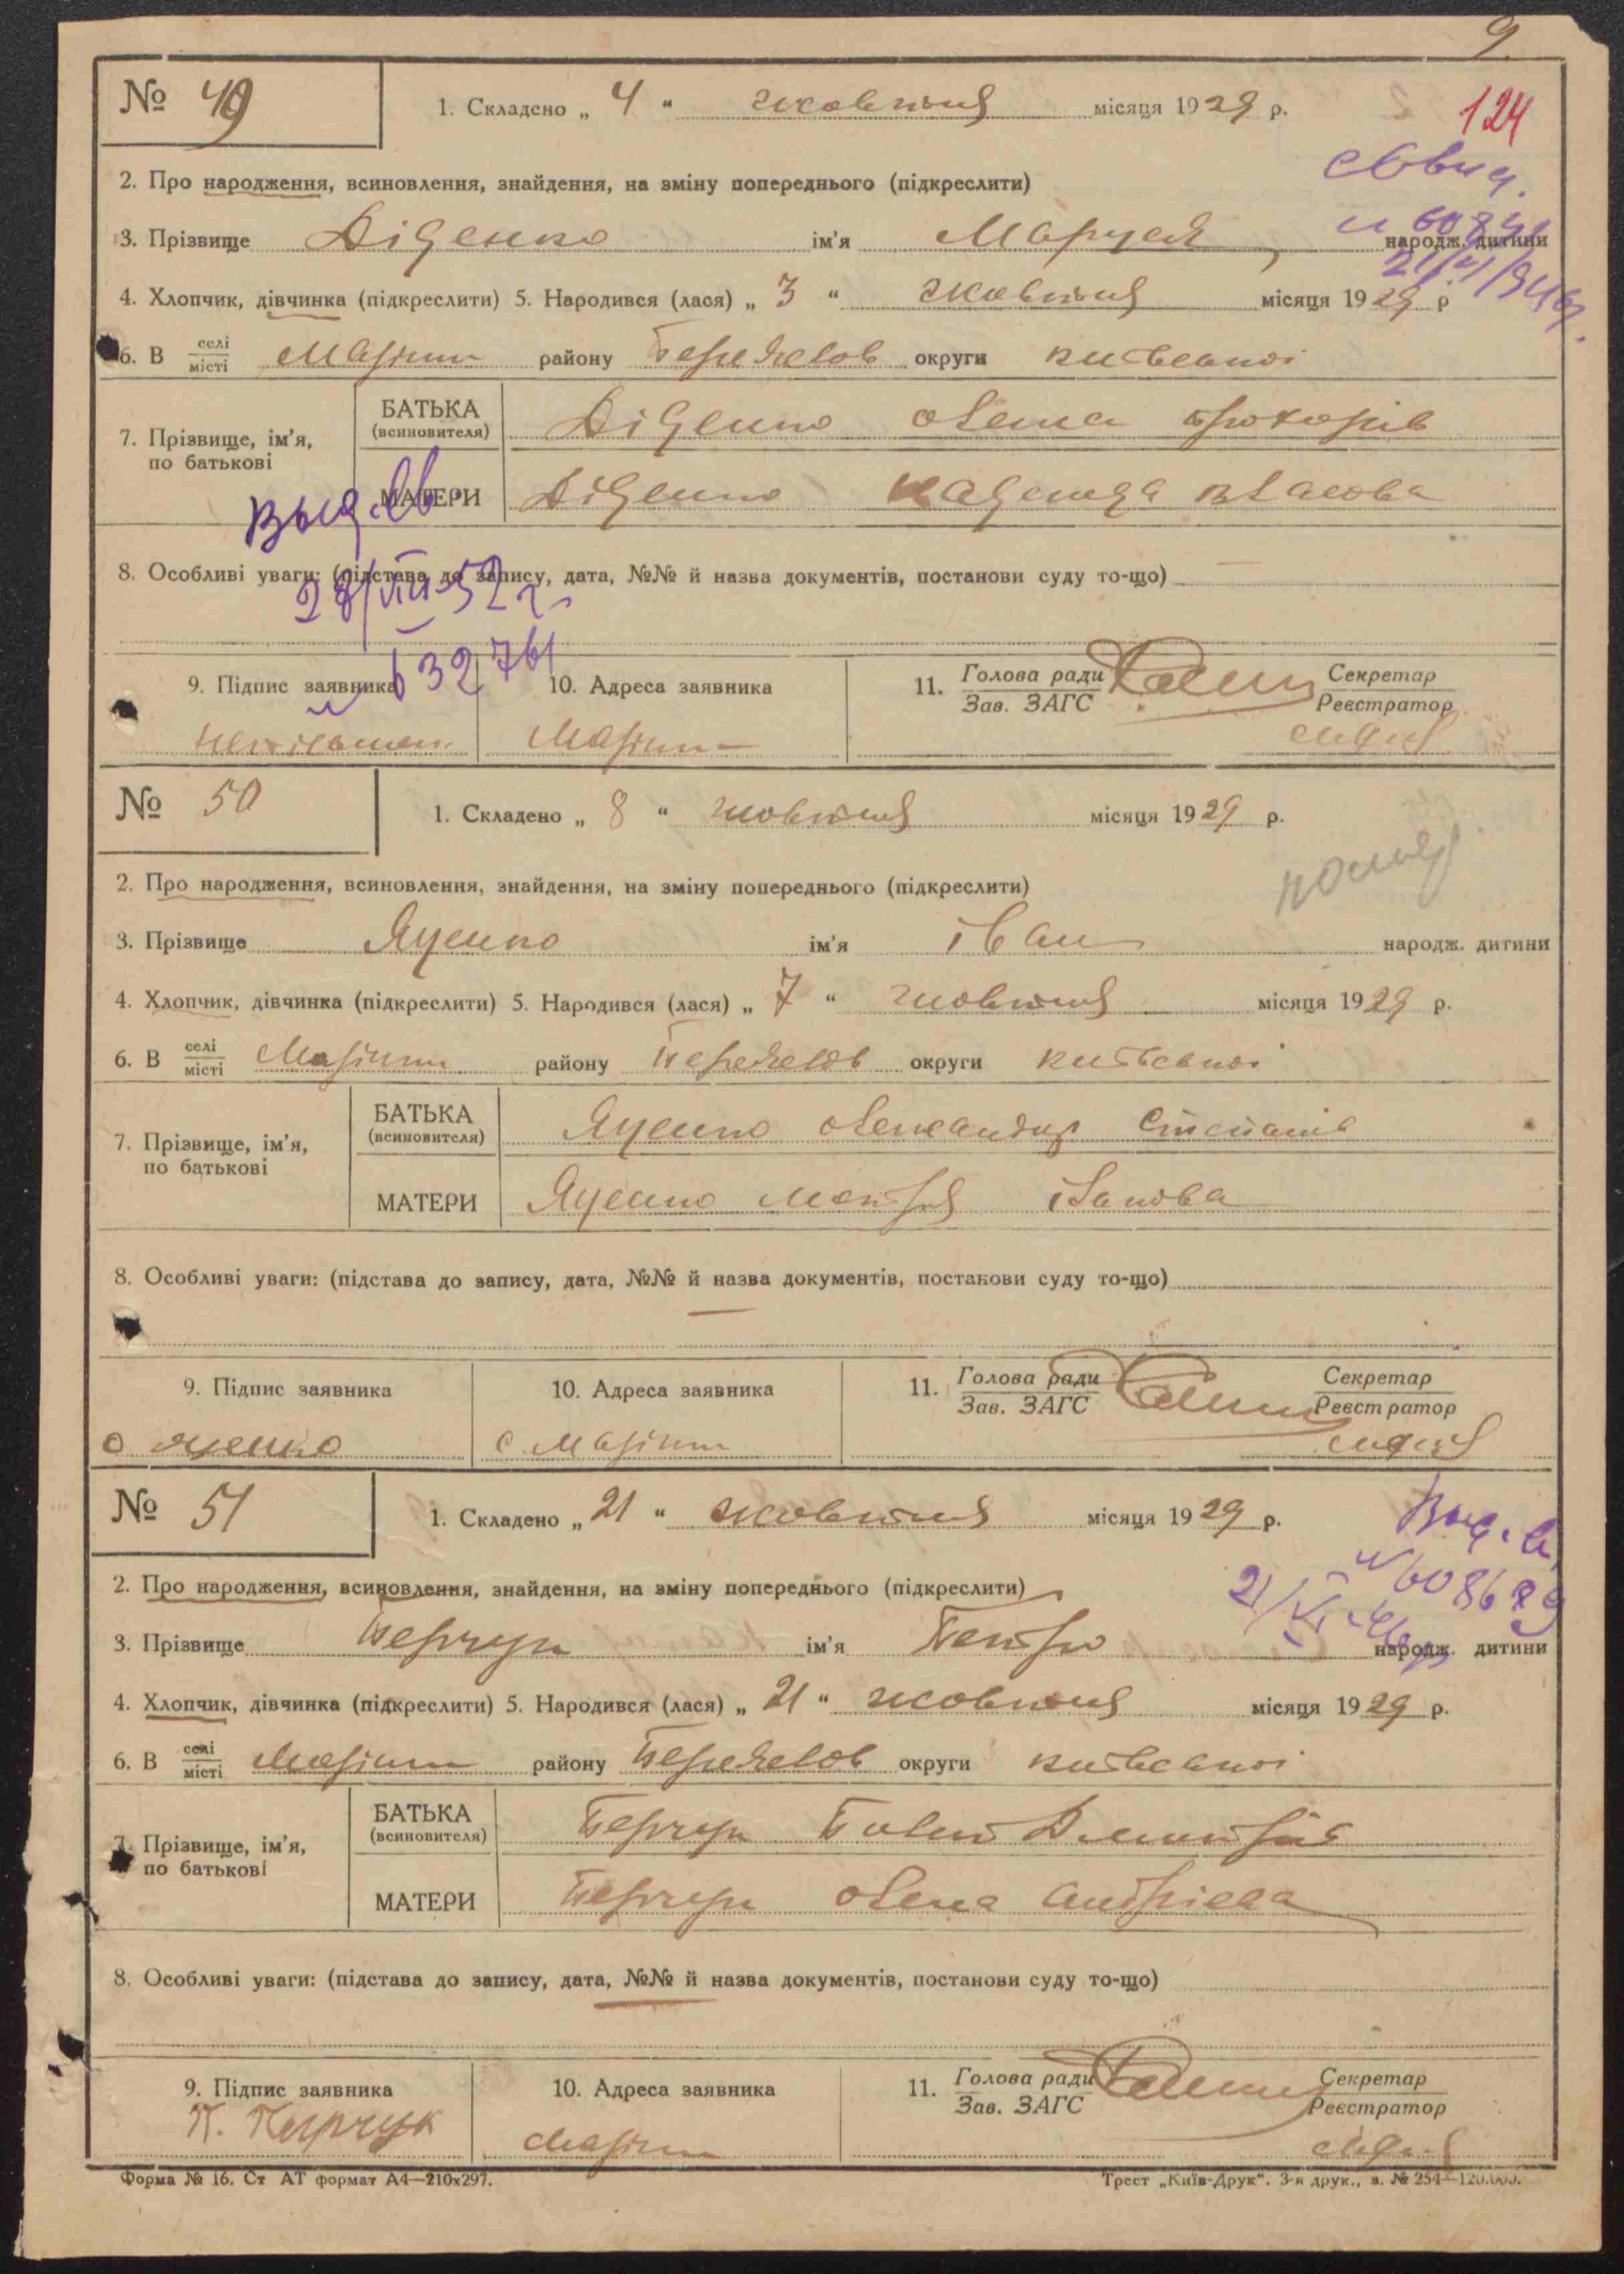 9
№ 49 1. Складено „ 4 “ жовтня місяця 1929 р.
124
2. Про народження, всиновлення, знайдення, на зміну попереднього (підкреслити)
3. Прізвище Діденко ім'я Маруся народж. дитини
4. Хлопчик, дівчинка (підкреслити) 5. Народився (лася) „ 3 “ жовтня місяця 1929 р
6. В селі/місті району Переяслов округи київської
БАТЬКА (всиновителя) Діденко Олекса Прохорів
7. Прізвище, ім'я, по батькові
МАТЕРИ Діденко Надежда Власова
Выд. св.
8. Особливі уваги: (підстава до запису, дата, №№ й назва документів, постанови суду то-що)
28/VIII-52 г.
9. Підпис заявника 10. Адреса заявника 11. Голова ради Секретар
Зав. ЗАГС Реєстратор
неписьмен.
№ 50 1. Складено „ 8 “ жовтня місяця 1929 р.
2. Про народження, всиновлення, знайдення, на зміну попереднього (підкреслити)
3. Прізвище Яценко ім'я Іван народж. дитини
4. Хлопчик, дівчинка (підкреслити) 5. Народився (лася) „ 7 “ жовтня місяця 1929 р.
6. В селі/місті району Переяслов округи київської
БАТЬКА (всиновителя) Яценко Олександер Степанів
7. Прізвище, ім'я, по батькові
МАТЕРИ Яценко Мотря Іванова
8. Особливі уваги: (підстава до запису, дата, №№ й назва документів, постанови суду то-що)
9. Підпис заявника 10. Адреса заявника 11. Голова ради Секретар
Зав. ЗАГС Реєстратор
О Яценко с.
№ 51 1. Складено „ 21 “ жовтня місяця 1929 р.
Выд. св.
2. Про народження, всиновлення, знайдення, на зміну попереднього (підкреслити)
3. Прізвище Перчук ім'я Петро народж. дитини
4. Хлопчик, дівчинка (підкреслити) 5. Народився (лася) „ 21 “ жовтня місяця 1929 р.
6. В селі/місті району Переяслов округи київської
БАТЬКА (всиновителя) Перчук Павло Дмитрів
7. Прізвище, ім'я, по батькові
МАТЕРИ Перчук Олена Андрієва
8. Особливі уваги: (підстава до запису, дата, №№ й назва документів, постанови суду то-що)
9. Підпис заявника 10. Адреса заявника 11. Голова ради Секретар
Зав. ЗАГС Реєстратор
П. Перчук
Форма № 16. Ст АТ формат А4—210х297. Трест „Київ-Друк“. 3-я друк., з. № 254—120.000.